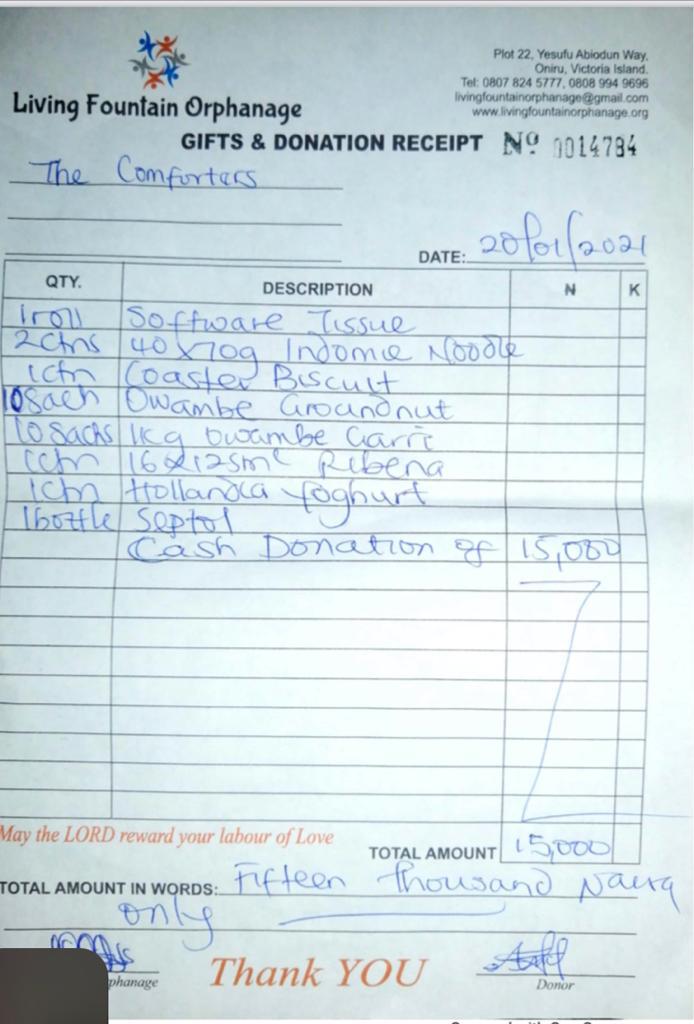 Plot 22, Yesufu Abiodun Way,
Oniru, Victoria Island.
Tel: 0807 824 5777, 0808 994 9696
livingfountainorphanage@gmail.com
www.livingfountainorphanage.org
Living Fountain Orphanage
GIFTS & DONATION RECEIPT Nº 0014784
The Comforters
DATE: 20/01/2021
QTY. DESCRIPTION N K
1roll Software Tissue
2ctns 40x70g Indomie Noodle
1ctn Coaster Biscuit
10Sach Owambe Groundnut
10 Sachs 1kg Owambe Garri
1ctn 16x125ml Ribena
1ctn Hollandia Yoghurt
1bottle Septol
Cash Donation of 15,000
May the LORD reward your labour of Love
TOTAL AMOUNT 15,000
TOTAL AMOUNT IN WORDS: Fifteen Thousand Naira
only
phanage Thank YOU Donor